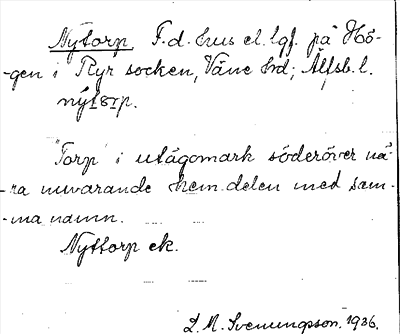 Nytorp. F.d. hus el. lgf. på Hö-
-gen i Ryr socken, Väne hd; Älfsb. l.
nýtorp.
"Torp" i utägomark söderöver nä-
-ra nuvarande hem.delen med sam-
-ma namn.
Nyttorp ek.
L. M. Svenungsson. 1936.